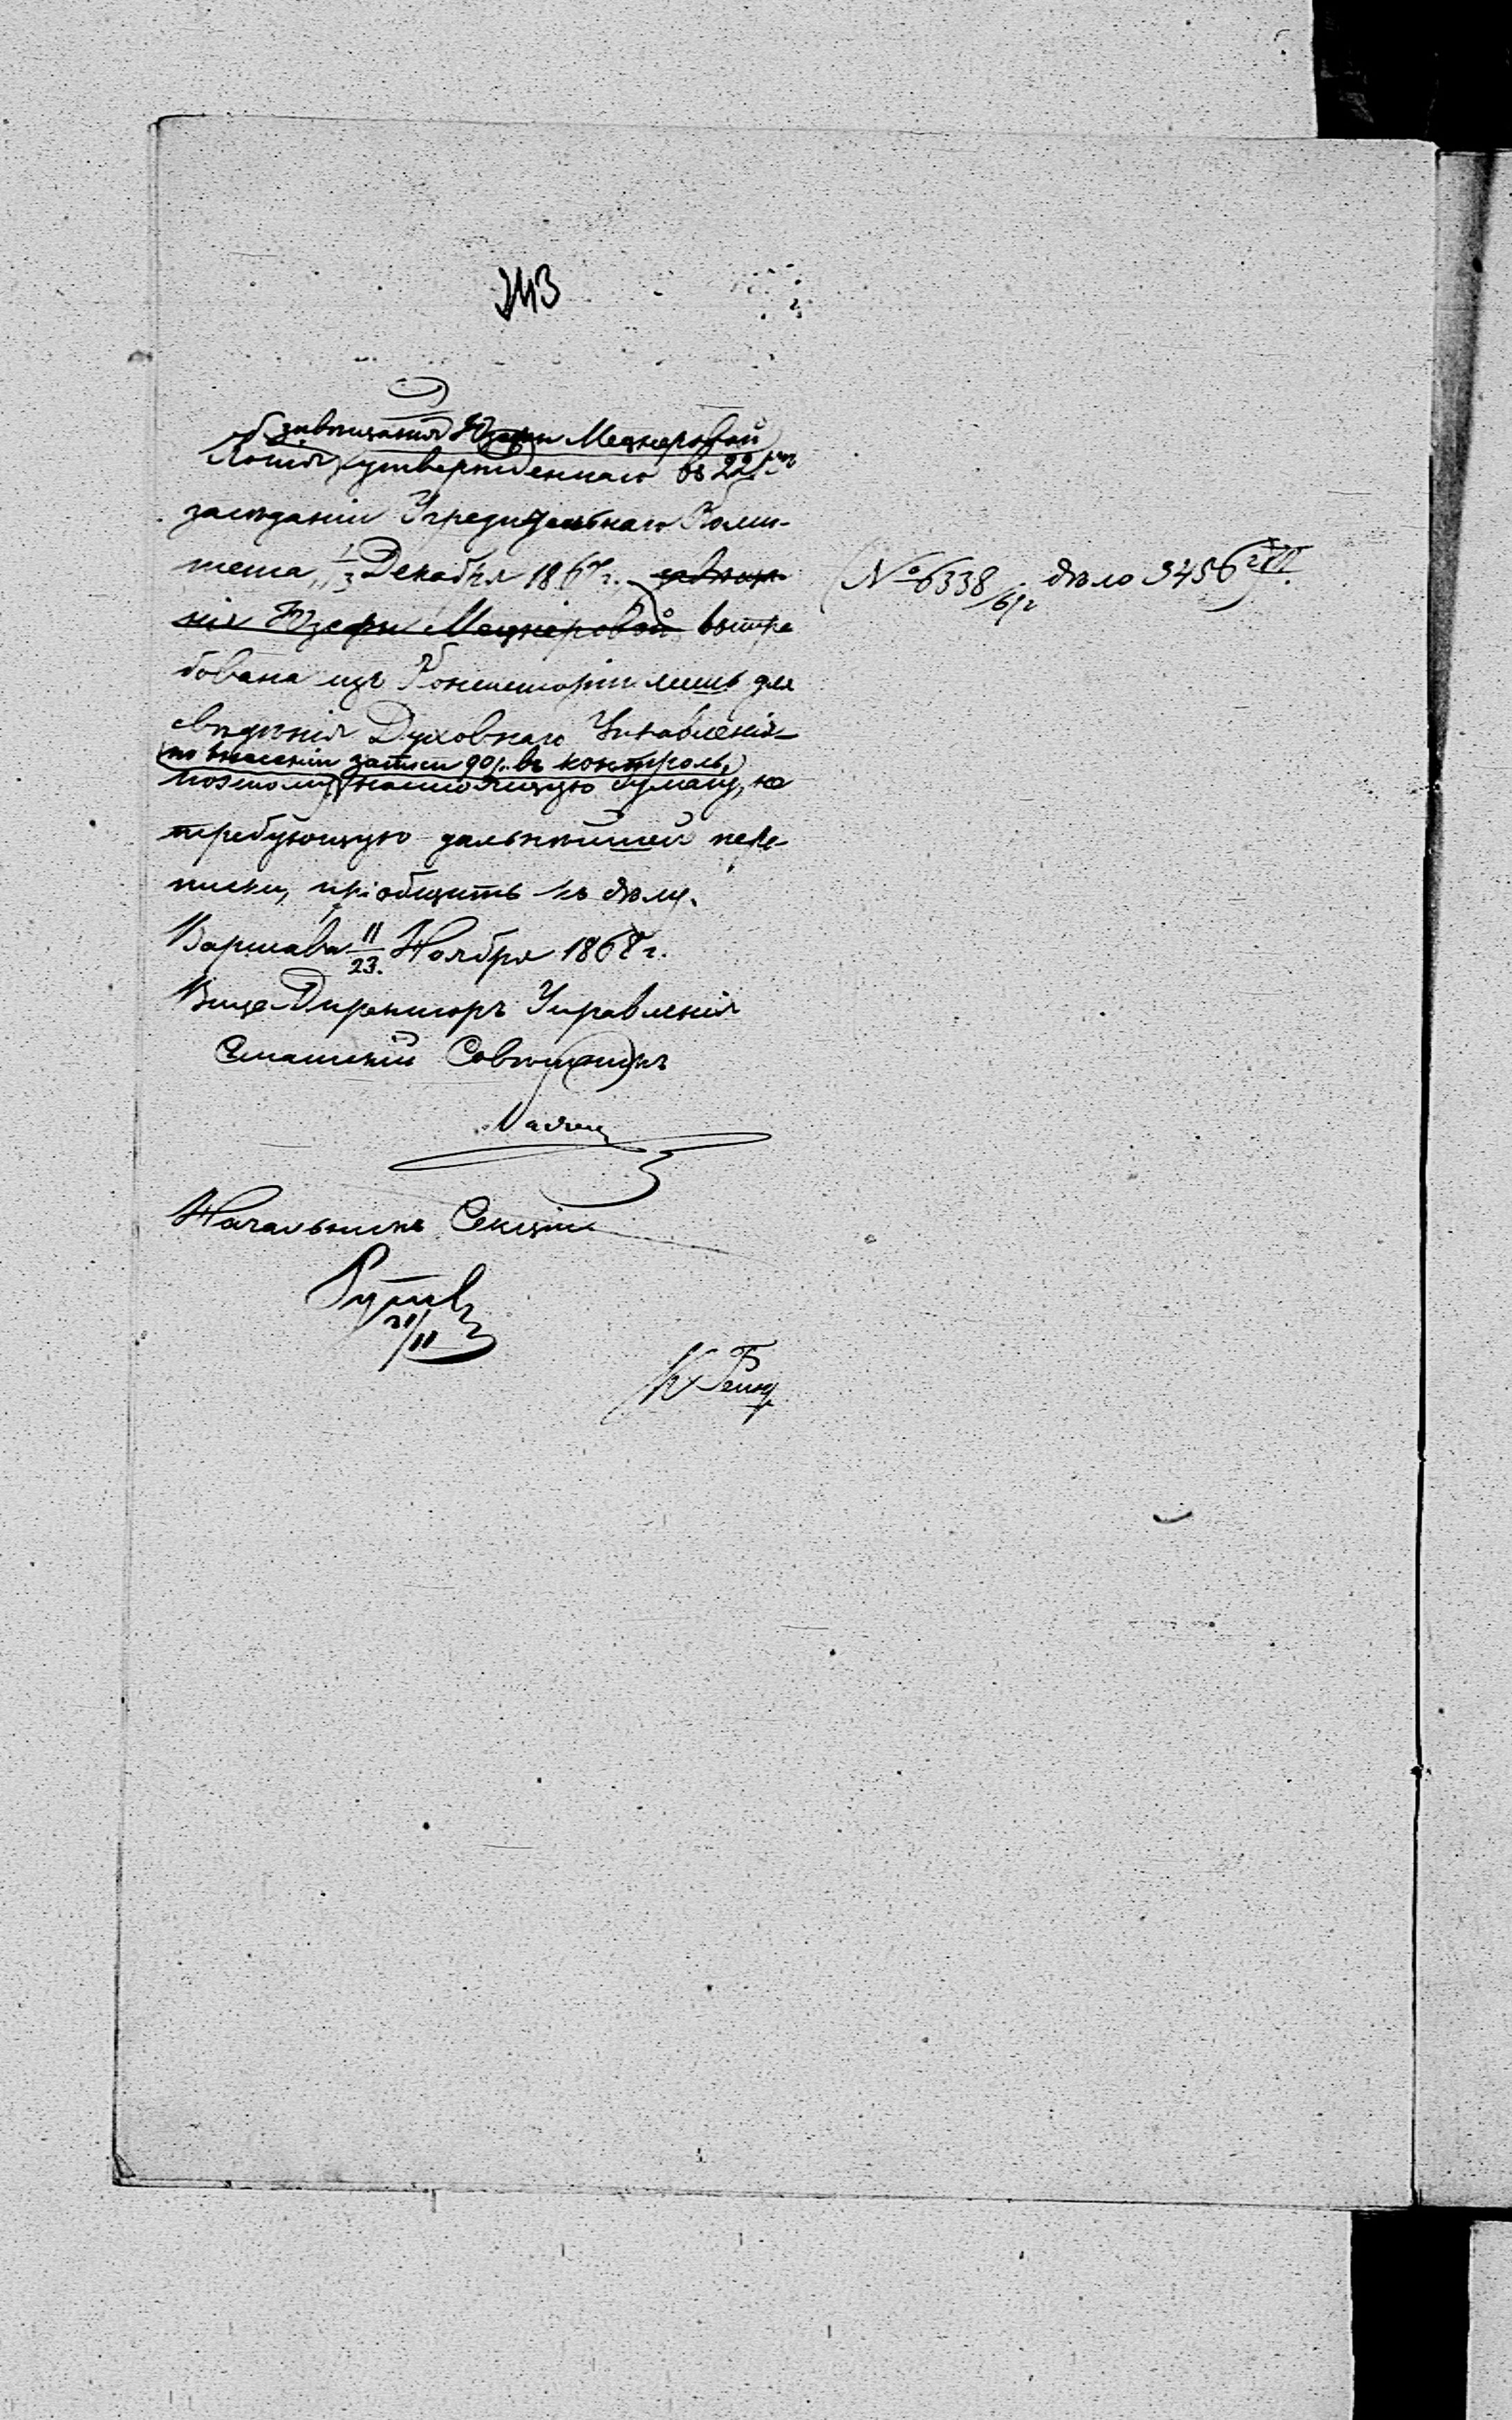 243
завѣщанія Юзефы Мецнеровой
Копія утвержденнаго въ 221мъ
засѣданіи Учредительнаго Коми-
тета, 1/13 Декабря 1867 г. завѣща-
нія Юзефы Мецнеровой вытре
бована изъ Консисторіи лишь для
свѣдѣнія Духовнаго Управленія
по внесеніи затѣи 90 р. въ контроль,
поэтому настоящую бумагу, не
требующую дальнѣйшей пере-
писки, пріобщить къ дѣлу.
Варшава 11/23. Ноября 1868 г.
Вице-Директоръ Управленія
Статскій Совѣтникъ
Начальникъ Секціи
11/11
(№ 6338/67 дѣло 3456